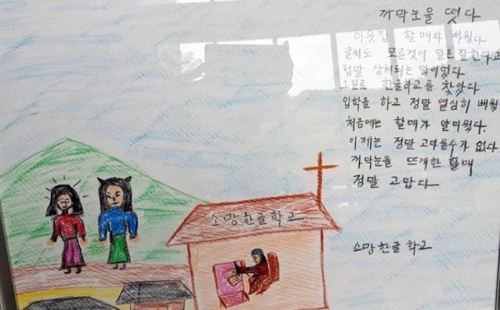 까막눈을 떳다
이웃집 할매랑 싸웠다
글씨도 모른것이 말은 잘한다고
정말 상처되는 말이였다
그길로 한글학교를 찾았다
입학을 하고 정말 열심히 배웠
처음에는 할매가 알미웠다
이제는 정말 고마울수가 없다
까막눈을 뜨게한 할매
정말 고맙다
소망한글학교
소망한글학교